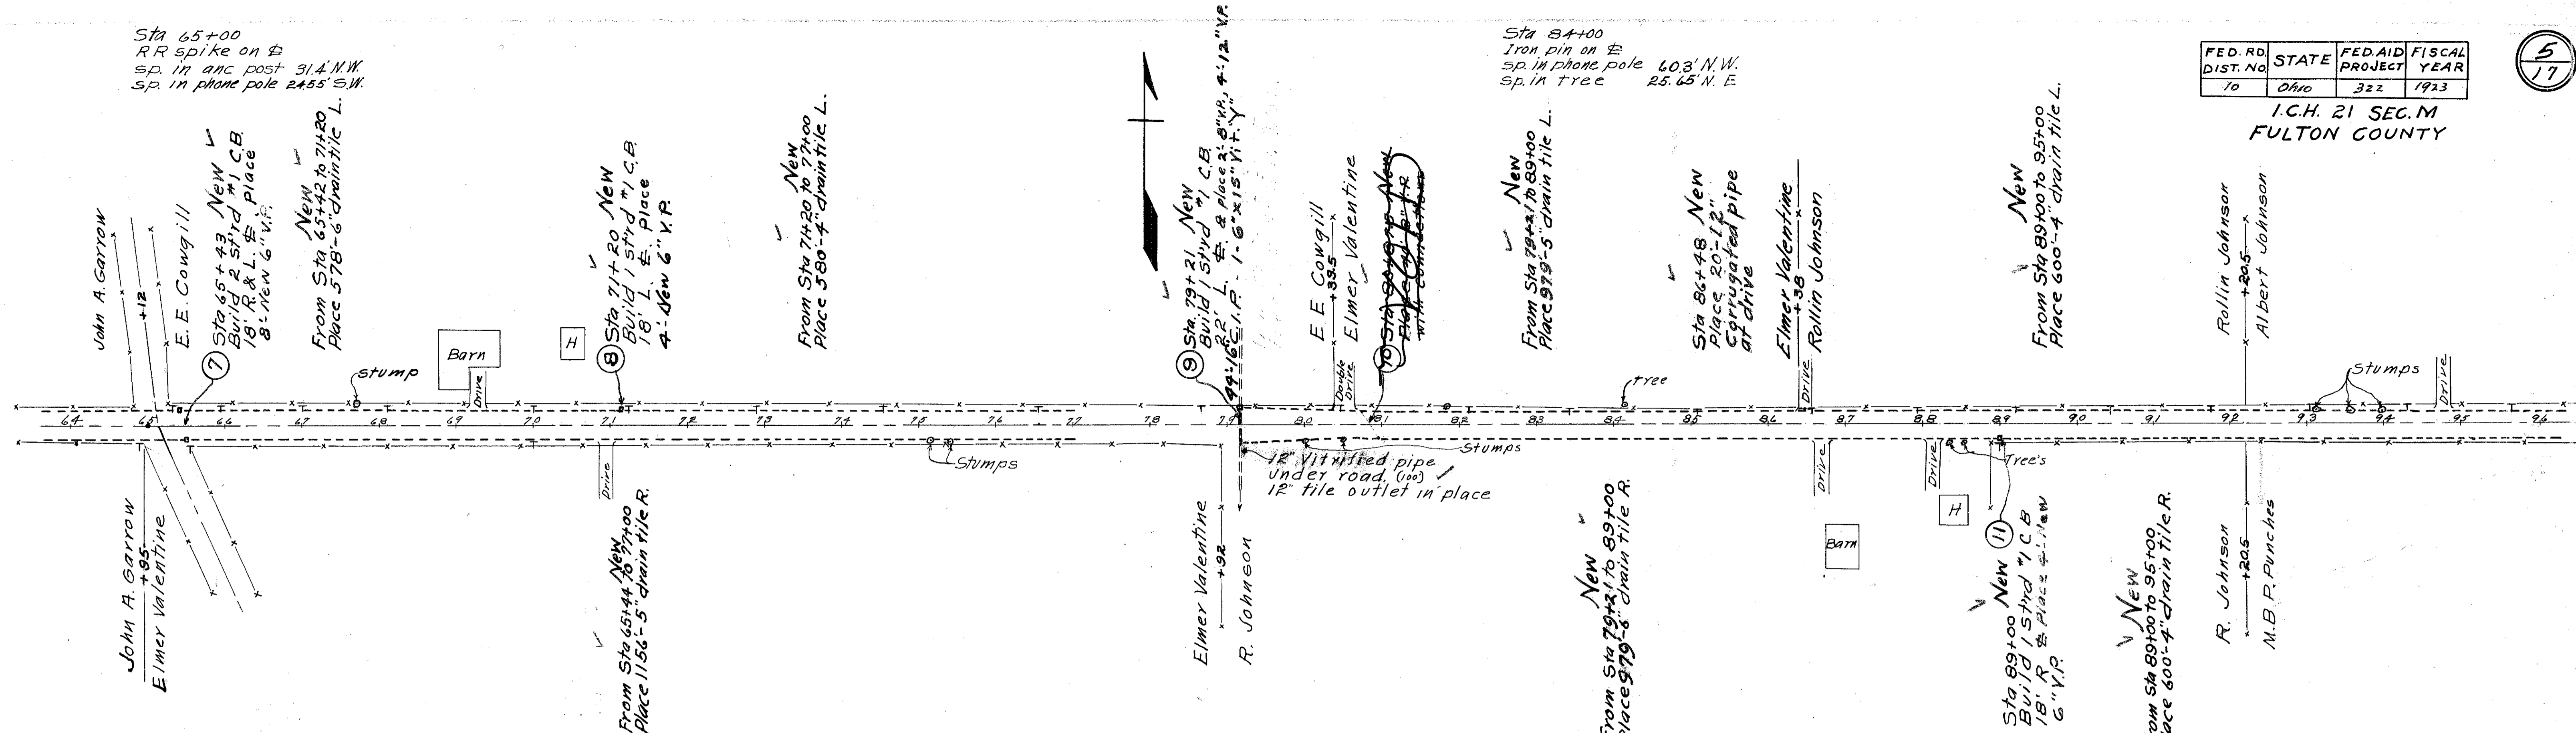 Sta 65+00
RR spike on ℄
sp. in anc post 31.4' N.W.
sp. in phone pole 24.55' S.W.
Sta 84+00
Iron pin on ℄
sp. in phone pole 60.3' N.W.
sp. in tree 25.65' N.E
FED. RD. DIST. NO. STATE FED. AID PROJECT FISCAL YEAR
10 Ohio 322 1923
I.C.H. 21 SEC. M
FULTON COUNTY
5
17
John A. Garrow
+12
E. E. Cowgill
7
Sta 65+43 New
Build 2 St'rd #1 C.B.
18' R. & L. ℄ Place
8'- New 6" V.P.
New
From Sta 65+42 to 71+20
Place 578'-6" drain tile L.
stump
Barn
Drive
H
8
Sta 71+20 New
Build 1 st'rd #1 C.B.
18' L. ℄. Place
4'- New 6" V.P.
New
From Sta 71+20 to 77+00
Place 580'-4" drain tile L.
9
Sta. 79+21 New
Build 1 St'rd #1 C.B.
22' L. ℄. & place 2'-8" V.P., 4'-12" V.P.
44'-16" C.I.P. - 1-6"x15" Vit. "Y"
E E Cowgill
+39.5
Elmer Valentine
Double Drive
10
New
From Sta 79+21 to 89+00
Place 979'-5" drain tile L.
tree
Sta 86+48 New
Place 20'-12"
Corrugated pipe
at drive
Elmer Valentine
+38
Rollin Johnson
Drive
New
From Sta 89+00 to 95+00
Place 600'-4" drain tile L.
Rollin Johnson
+20.5
Albert Johnson
Stumps
Drive
64 65 66 67 68 69 70 71 72 73 74 75 76 77 78 79 80 81 82 83 84 85 86 87 88 89 90 91 92 93 94 95 96
John A. Garrow
+95
Elmer Valentine
Drive
New
From Sta 65+44 to 77+00
Place 1156'-5" drain tile R.
Stumps
Elmer Valentine
+92
R. Johnson
12" Vitrified pipe
under road. (100)
12" tile outlet in place
Stumps
New
From Sta 79+21 to 89+00
Place 979'-6" drain tile R.
Drive
Barn
Drive
H
Tree's
11
Sta 89+00 New
Build 1 St'rd #1 C B
18' R ℄ Place 4'-New
6" V.P.
New
From Sta 89+00 to 95+00
Place 600'-4" drain tile R.
R. Johnson
+20.5
M.B.P. Punches